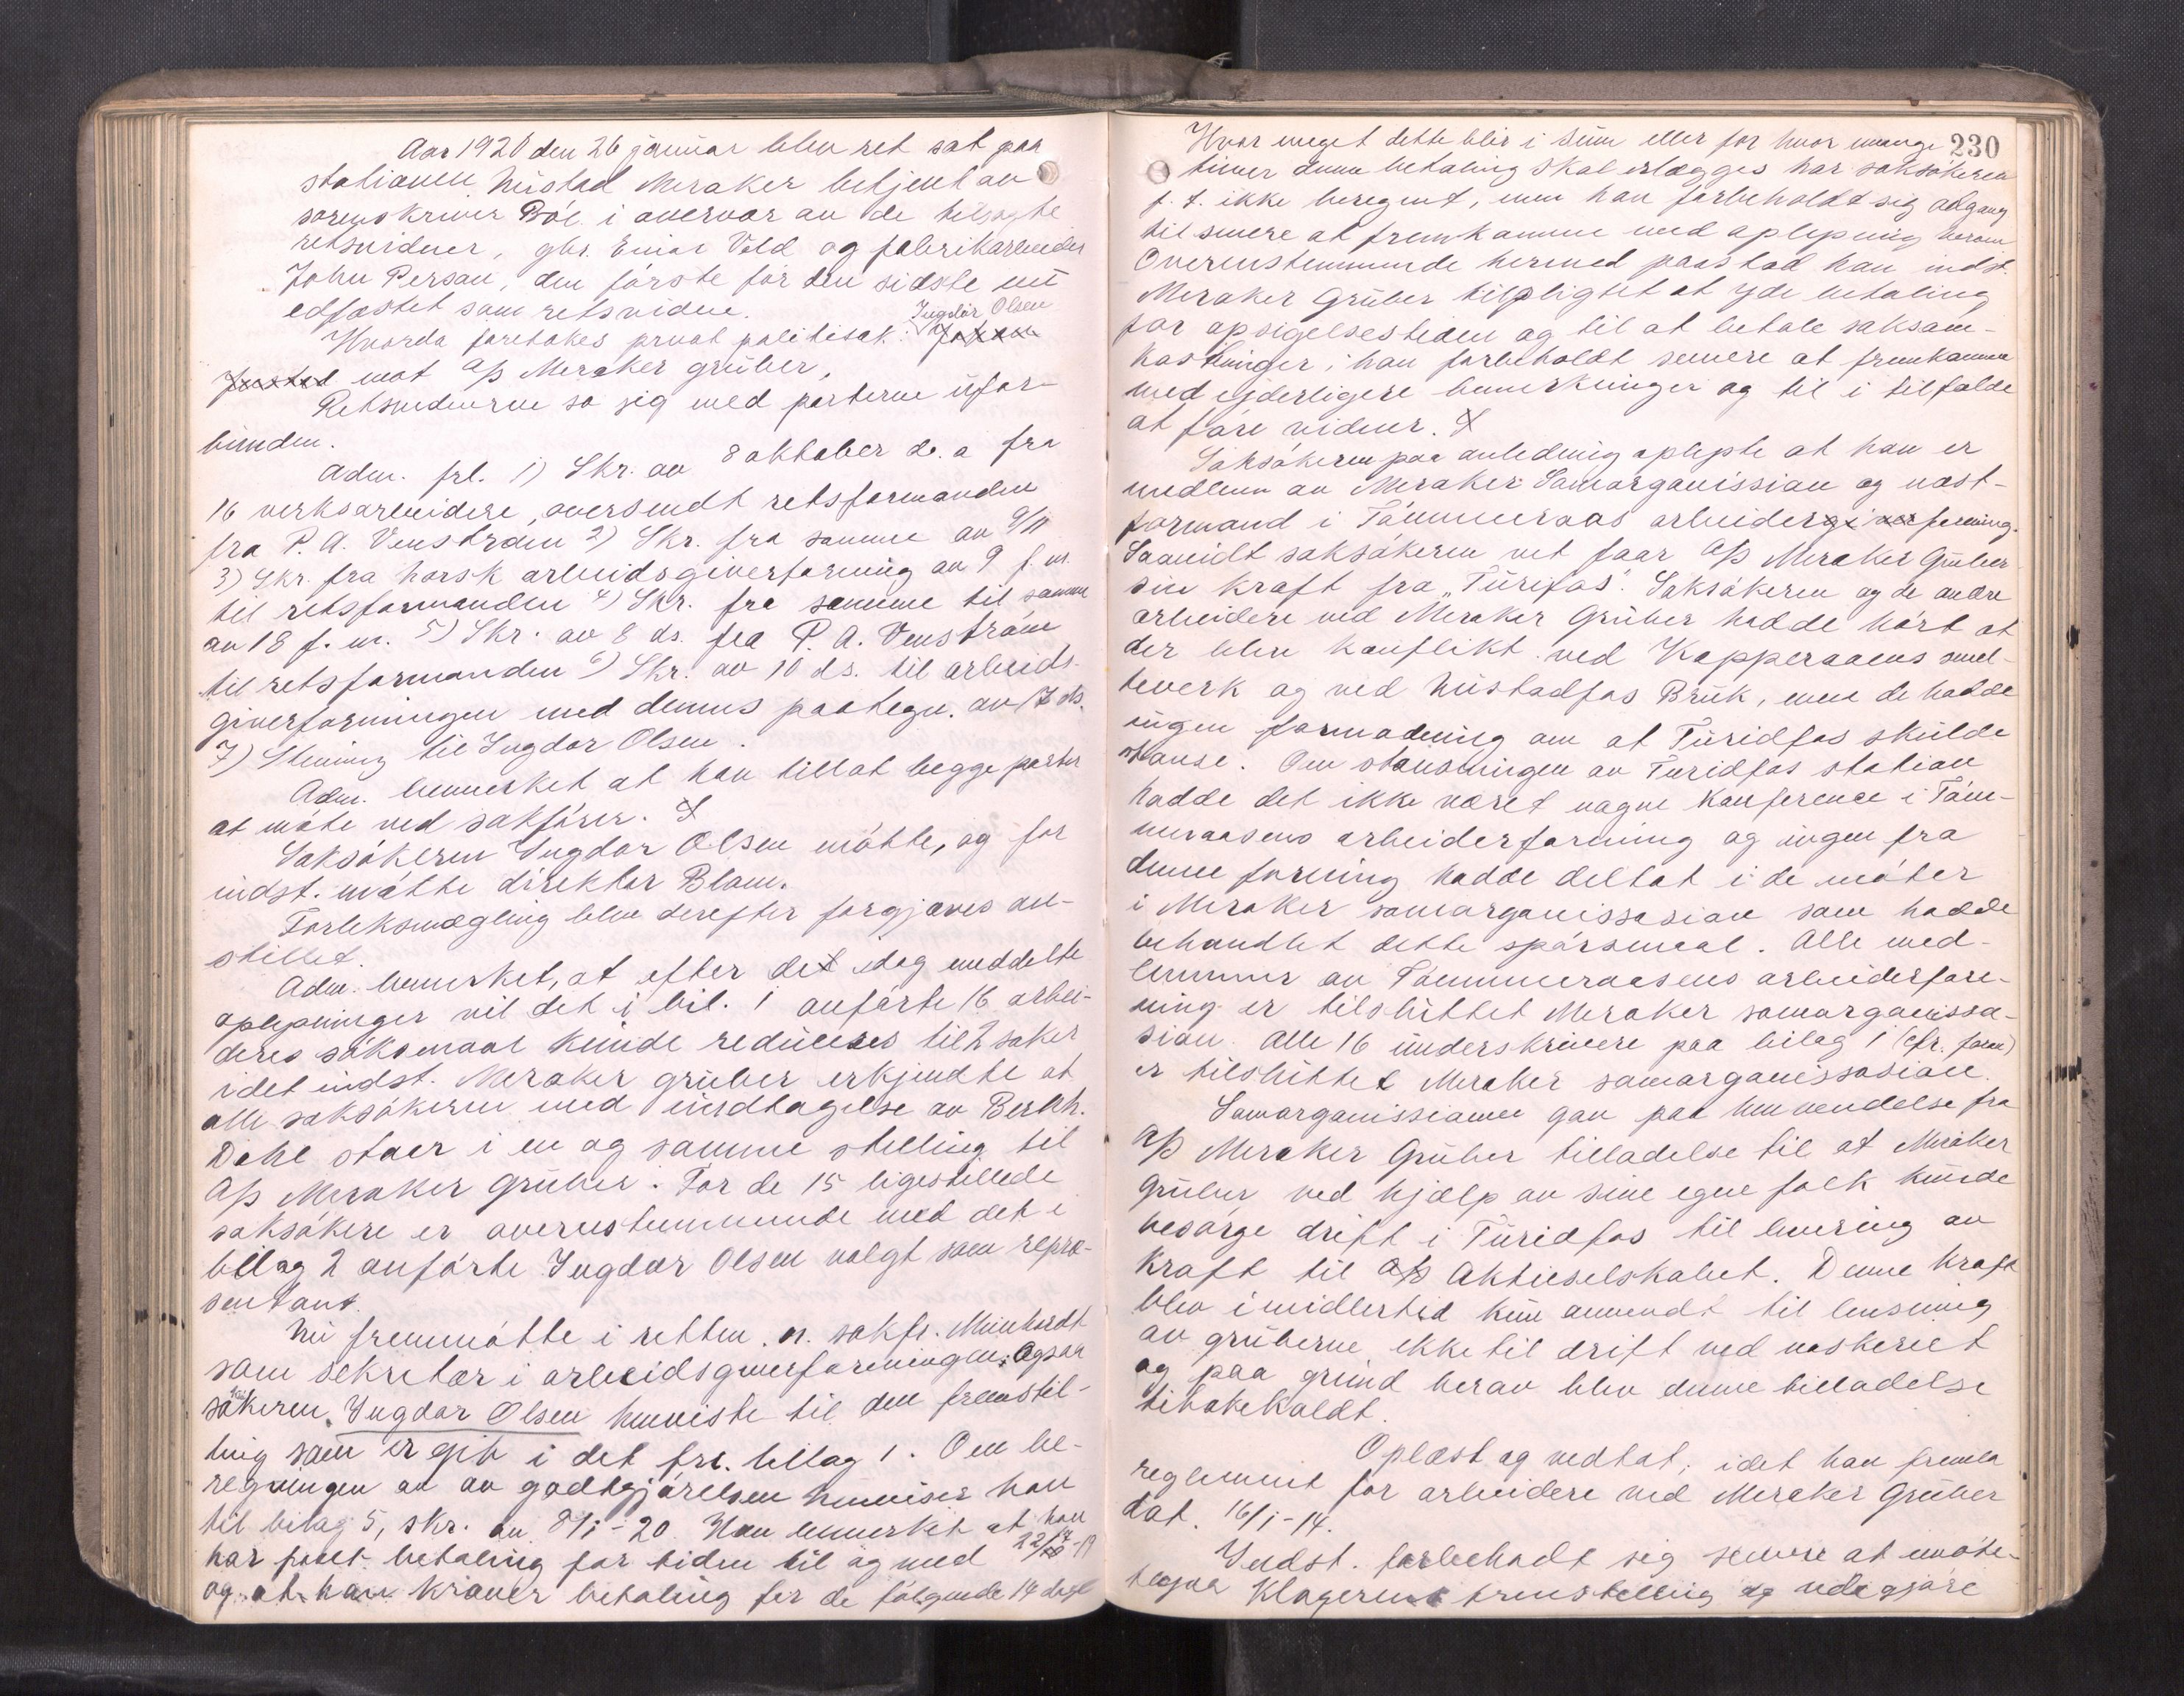 Aar 1920 den 26 januar blev ret sat paa
stationen Nustad Meraker betjent av
sorenskriver Böe i overvær av de tilsagte
retsvidner, gbr. Einar Vold og fabrikarbeider
John Persen, den förste for den sidste nu
edfæstet som retsvidne.
Hvorda foretokes privat politisak: Ingdör Olsen Johan
Justad mot A/S Meraker gruber,
Retsvidnerne so sig med parterne ufor-
bunden.
Adm. frl. 1) Skr. av 8 oktober d. a fra
16 verksarbeidere, oversendt retsformanden
fra P. A. Venström 2) Skr. fra samme av 9/11
3) Skr. fra Norsk arbeidsgiverforening av 9 f. m.
til retsformanden 4) Skr. fra samme til samme
av 18 f. m. 5) Skr. av 8 ds. fra P. A. Venström
til retsformanden 6) Skr. av 10 ds. til arbeids-
giverforeningen med dennes paategn. av 17 ds.
7) Stevning til Ingdor Olsen.
Adm. bemerket at han tillot begge parter
at möte ved sakförer.
Saksökeren Ingdor Olsen mötte, og for
indst. mötte direktör Blom.
Forliksmægling blev derefter forgjæves an-
stillet.
Adm. bemerket, at efter det idag meddelte
oplysninger vil det i bil. 1 anförte 16 arbei-
deres söksmaal kunde reduceres til 2 saker
idet indst. Meraker gruber erkjendte at
alle saksökeren med undtagelse av Bernh.
Dahl staar i en og samme stilling til
A/S Meraker gruber. For de 15 ligestillede
saksökere er overensstemmende med det i
bilag 2 anförte Ingdor Olsen valgt som repræ-
sentant.
Nu fremmötte i retten o. sakfr. Meinhardt
som sekretær i arbeidsgiverforeningen. Ogsaa
söksökeren Ingdor Olsen henviste til den fremstil-
ling som er git i det frl. bilag 1. Om be-
regningen av av godtgjörelsen henviser han
til bilag 5, skr. av 8/1-20. Han bemerket at han
har faaet betaling for tiden til og med 22/12-19
og at han kræver betaling for de fölgende 14 dage
230
Hvor meget dette blir i sum eller for hvor mange
timer denne betaling skal erlægges har saksökeren
f. t. ikke beregnet, men han forbeholdt sig adgang
til senere at fremkomme med oplysning herom
Overensstemmende hermed paastod han indst.
Meraker Gruber tilpligtet at yde betaling
for opsigelsestiden og til at betale saksom-
kostninger; han forbeholdt senere at fremkomme
med yderligere bemerkninger og til i tilfælde
at före vidner.
Saksökeren paa anledning oplyste at han er
medlem av Meraker Samorganission og næst-
formand i Tömmeraas arbeidergi ver forening.
Saavidt saksökeren vet faar A/S Meraker Gruber
sin kraft fra „Turifos". Saksökeren og de andre
arbeidere ved Meraker Gruber hadde hört at
der blev konflikt ved Kopperaaens smel-
teverk og ved Nustadfos Bruk, men de hadde
ingen formodning om at Turidfos skulde
stanse. Om stansningen av Turidfos station
hadde det ikke været nogen konference i Töm-
meraasens arbeiderforening og ingen fra
denne forening hadde deltat i de möter
i Meraker samorganissasion som hadde
behandlet dette spörsmaal. Alle med-
lemmer av Tömmeraasens arbeiderfore-
ning er tilsluttet Meraker samorganissa-
sion. Alle 16 underskrivere paa bilag 1 (cfr. foran)
er tilsluttet Meraker samorganissasion.
Samorganissionen gav paa henvendelse fra
A/S Meraker Gruber tilladelse til at Meraker
Gruber ved hjælp av sine egne folk kunde
besörge drift i Turidfos til levering av
kraft til A/S Aktieselskabet. Denne kraft
blev imidlertid kun anvendt til lensning
av gruberne ikke til drift ved vaskeriet
og paa grund herav blev denne tilladelse
tilbakekaldt.
Oplæst og vedtat, idet han fremla
reglement for arbeidere ved Meraker Gruber
dat. 16/1-14.
Indst. forbeholdt sig senere at imöte-
tegaa Klagerens fremstilling og redegjöre